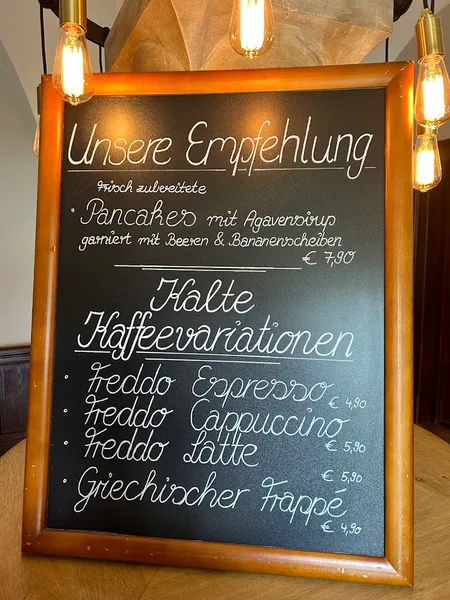 Unsere Empfehlung
Frisch zubereitete
· Pancakes mit Agavensirup
garniert mit Beeren & Bananenscheiben
€ 7,90
Kalte
Kaffeevariationen
· Freddo Espresso € 4,90
· Freddo Cappuccino
€ 5,90
· Freddo Latte
€ 5,90
· Griechischer Frappé
€ 4,90